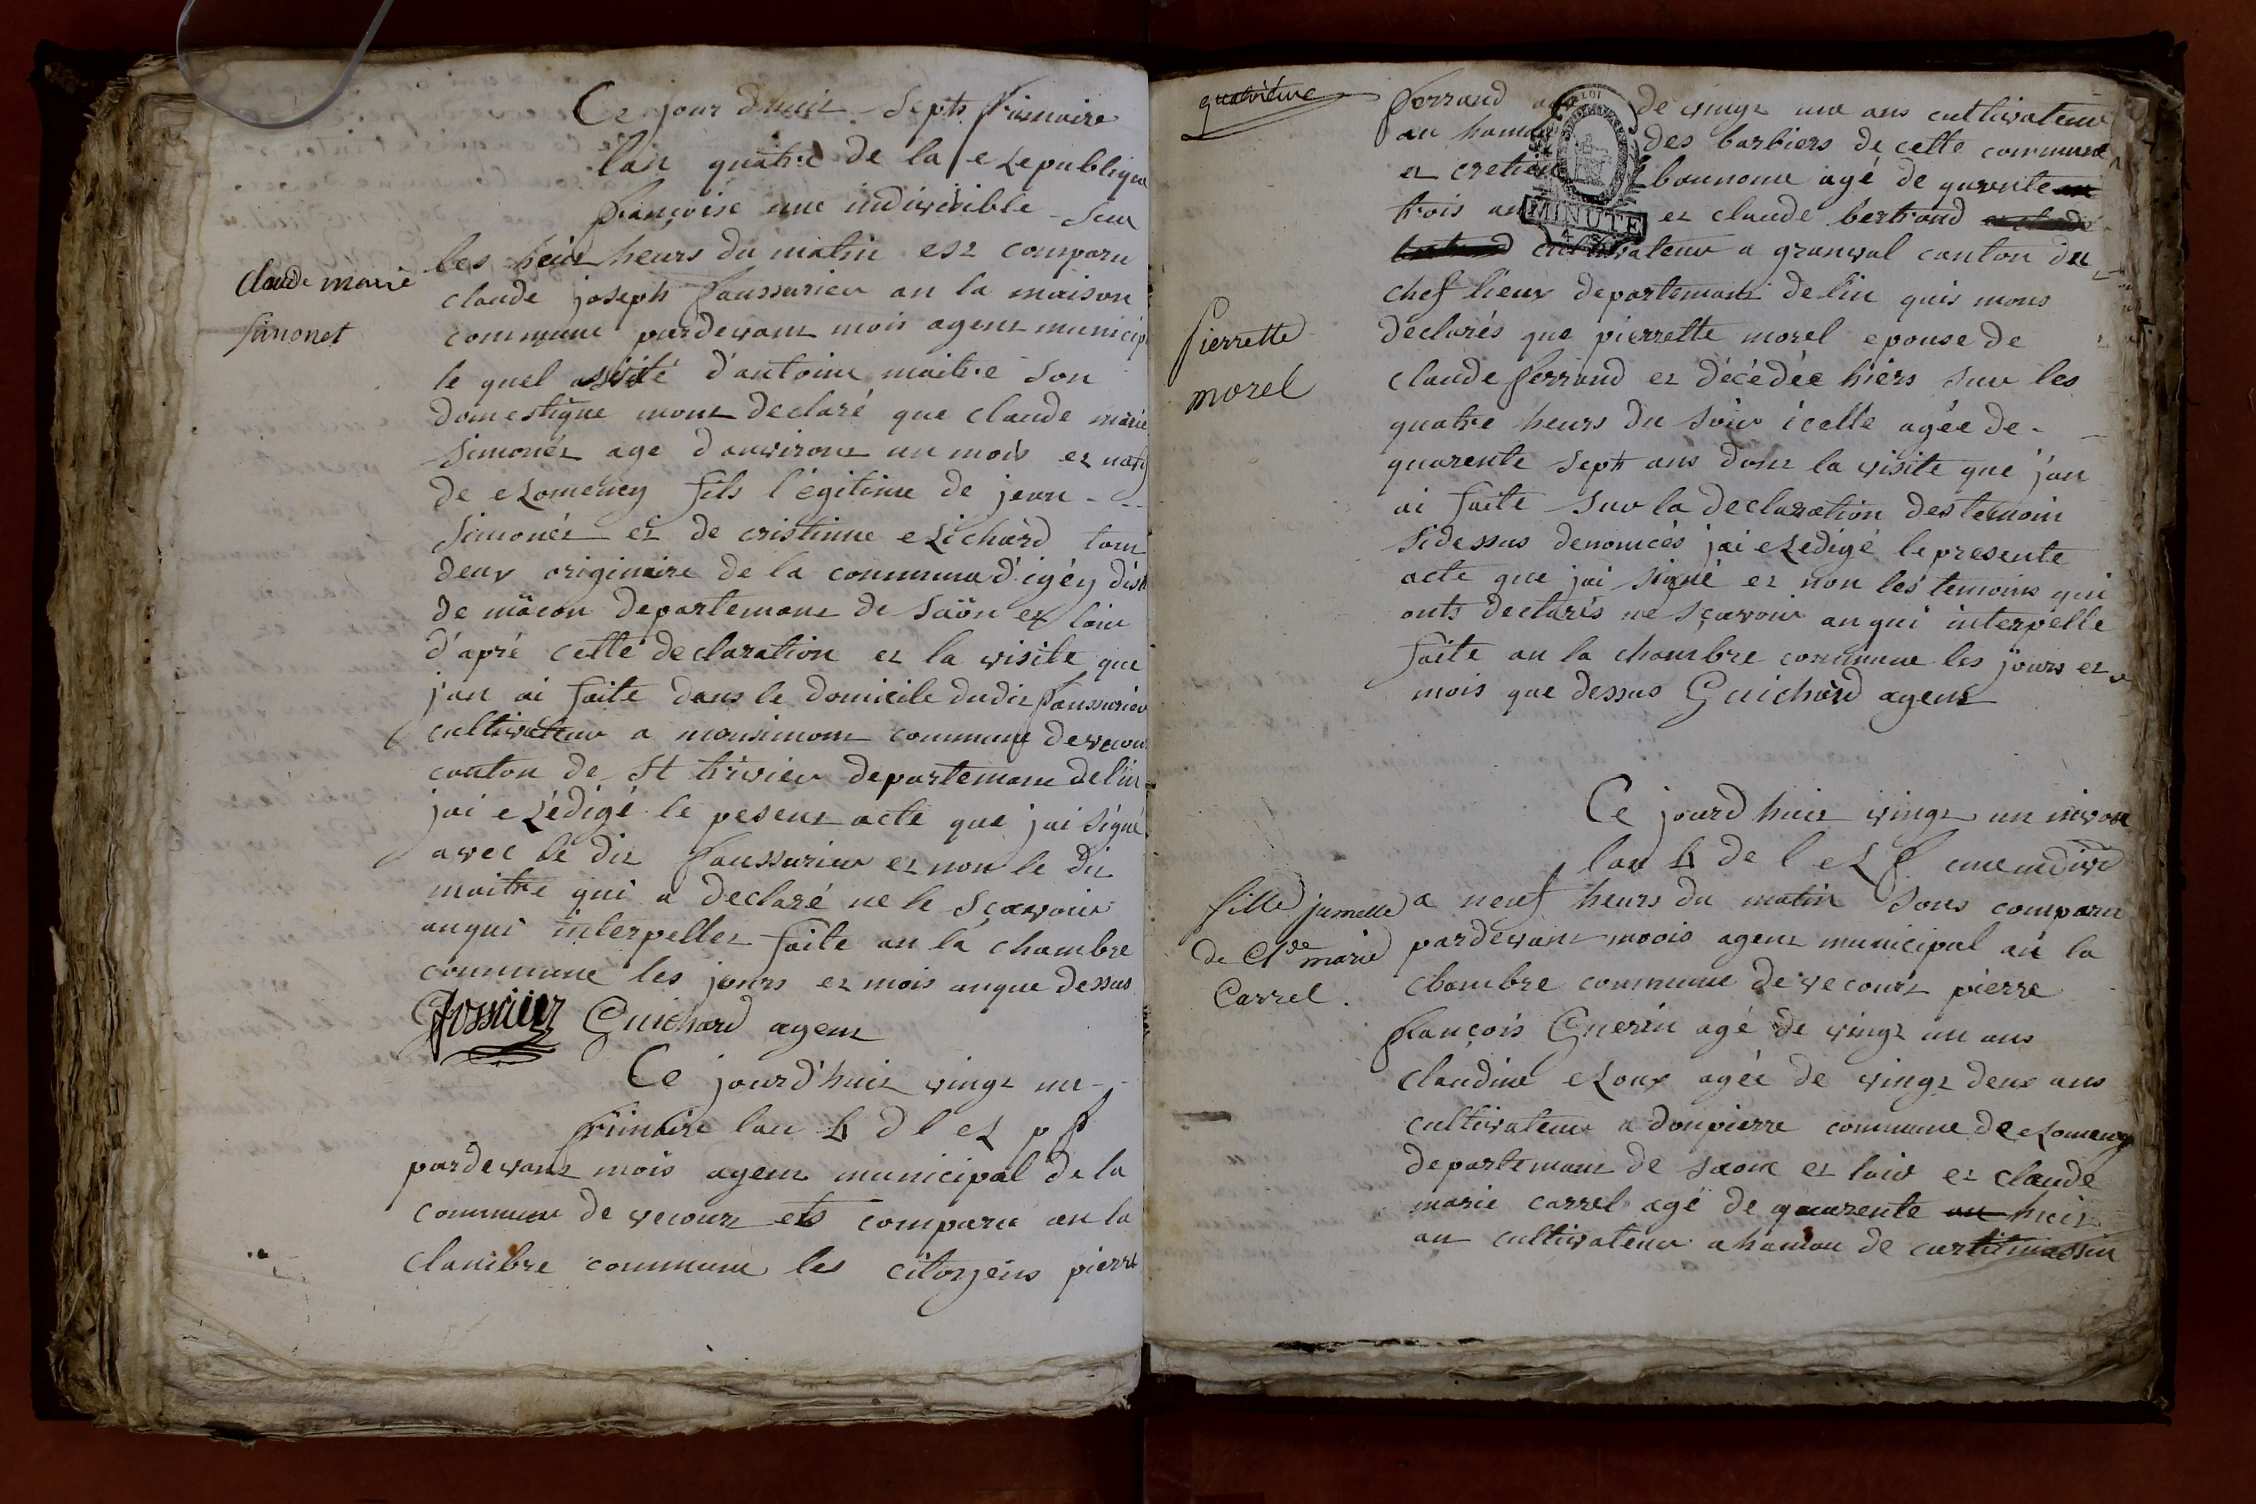 Ce jour dhuit Sept frimaire
lan quatre de la eRepublique
françoise une indivisible Sur
les huit heurs du matin est comparu
claude joseph faussurier an la maison
claude marie
Simonet
commune pardevant mois agent municip
le quel assité d'antoine maitre Son
domestique mont declaré que claude marie
Simonet age d'anviront un mois et natif
de eRomeney fils légitime de jean
Simonet et de cristinne eRichard tout
deux originaire de la commune d'igéy dist
de mâcon departemant de Saön et loir
d'apré cette declaration et la visite que
j'an ai faite dans le domicile dudit faussurier
cultivateur a monsimont commune de vecour
canton de St trivier departemant de lin
jai eRédigé le pesent acte que jai Signé
avec le dit faussurier et non le dit
maitre qui a declaré ne le Sçavoir
anqui interpellet faite an la chambre
commune les jours et mois anque dessus
Guichard agent
Ce jourd'huit vingt un
frimaire lan 4 d l eR f
pardevant mois agent municipal de la
commune de vecour ets comparu an la
chambre commune les citoyens pierre
quatrième
ferrand de vingt un ans cultivateur
au hameau des barbiers de cette commune
et cretien bonnome agé de quarente
trois an et claude bertrand
MINUTE
cultivateur a granval canton du
chef lieux departemant de lin quis mons
déclarés que pierrette morel epouse de
Pierrette
morel
claude ferrand et décédée hiers sur les
quatre heurs du Soir icelle agée de
quarente Sept ans dont la visite que j'an
ai faite Sur la declaration des temoin
Sidessus denoncés jai eRedigé le presente
acte que jai signé et non les temoins qui
onts declarés ne Sçavoir anqui interpelle
faite an la chambre commune les jours et
mois que dessus Guichard agent
Ce jourd huit vingt un nivose
lan 4 de l eR f une indivi
a neuf heurs du matin Sons comparu
fille jumelle
de Cde marie
Carrel.
pardevant moois agent municipal an la
chambre commune de vecourt pierre
françois Guerin agé de vingt un ans
claudine eRoux agée de vingt deux ans
cultivateur a donpierre commune de eRomeney
departemant de Saone et loir et claude
marie carrel agé de quarente an huit
an cultivateur a hamau de curtitmassin